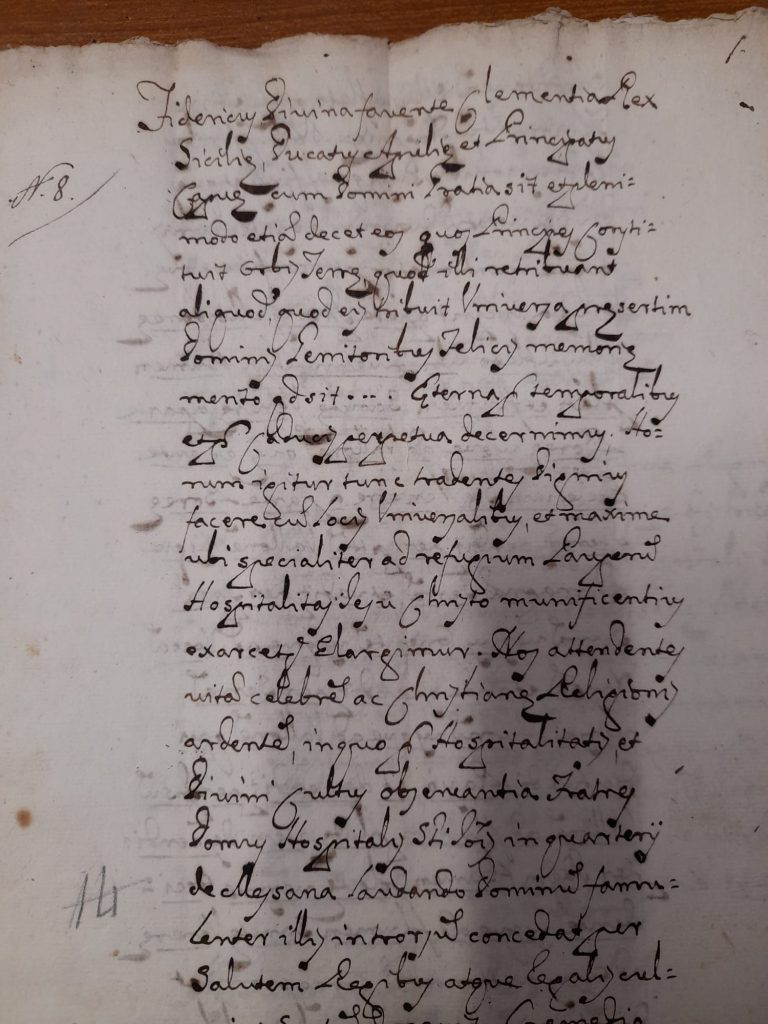 1.
Fidericus Divina favente Clementia Rex
Sicilię, Ducatus Apulię et Principatus
N. 8.
Capuę cum Domini Gratia sit et pleni-
modo etiā decet eos quos Principes Consti-
tuit Orbis Terrę, quod illi retribuant
aliquod, quod eis tribuit Universa pręsertim
Domini Genitoribus Felicis memorię
adsit.... Ęterna temporalibus
Caducis perpetua decernimus. Ho-
rum igitur tunc tradentes Dignius
facere cū Locis Universalibus, et maxime
ubi specialiter ad refugium Pauperū
Hospitalitas Jesu Christo munificentius
Elargimur. Nos attendentes
vitā celebrē ac Christianę Religionis
ardentē, in quo Hospitalitatis, et
Divini Cultus observantia Fratres
Domus Hospitalis Sti in
de Messana Laudando Dominū famu-
lenter illis introrsū concedat per
Salutem Regibus atque Legalis cul-